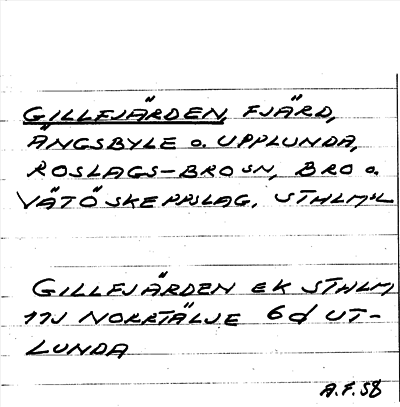 GILLFJÄRDEN, FJÄRD,
ÄNGSBYLE o. UPPLUNDA,
ROSLAGS-BRO SN, BRO o.
VÄTÖ SKEPPSLAG. STHLMS L
GILLFJÄRDEN EK STHLM
11J NORRTÄLJE 6d UT-
LUNDA
A.F. 58